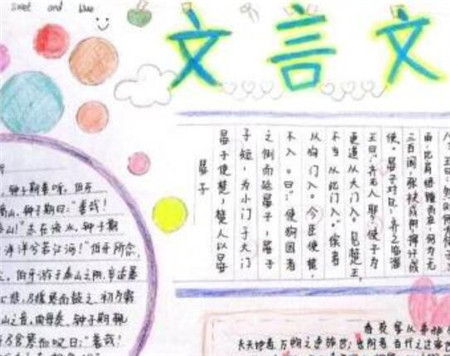 swet and blue
文言文
晏子
晏子使楚，楚人以晏
子短，为小门于大门
之侧而延晏子，晏子
不入。曰：“使狗国者
从狗门入。今臣使楚，
不当从此门入。”傧者
更道从大门入。见楚王，
王曰：“齐无人耶？使子为
使。”晏子对曰：“齐之临淄
三百闾，张袂成阴，挥汗成
雨，比肩继踵而在，何为无
钟子期善听。伯牙
高山，钟子期曰：“善哉！
泰山！”志在流水，钟子期
洋洋兮若江河！”伯牙所念，
伯牙游于泰山之阴，卒逢暴
心悲，乃援琴而鼓之。初为霖
山之音，曲每奏，钟子期辄
舍琴而叹曰：“善哉！
春夜宴从弟桃
夫天地者，万物之逆旅也；光阴者，百代之过客